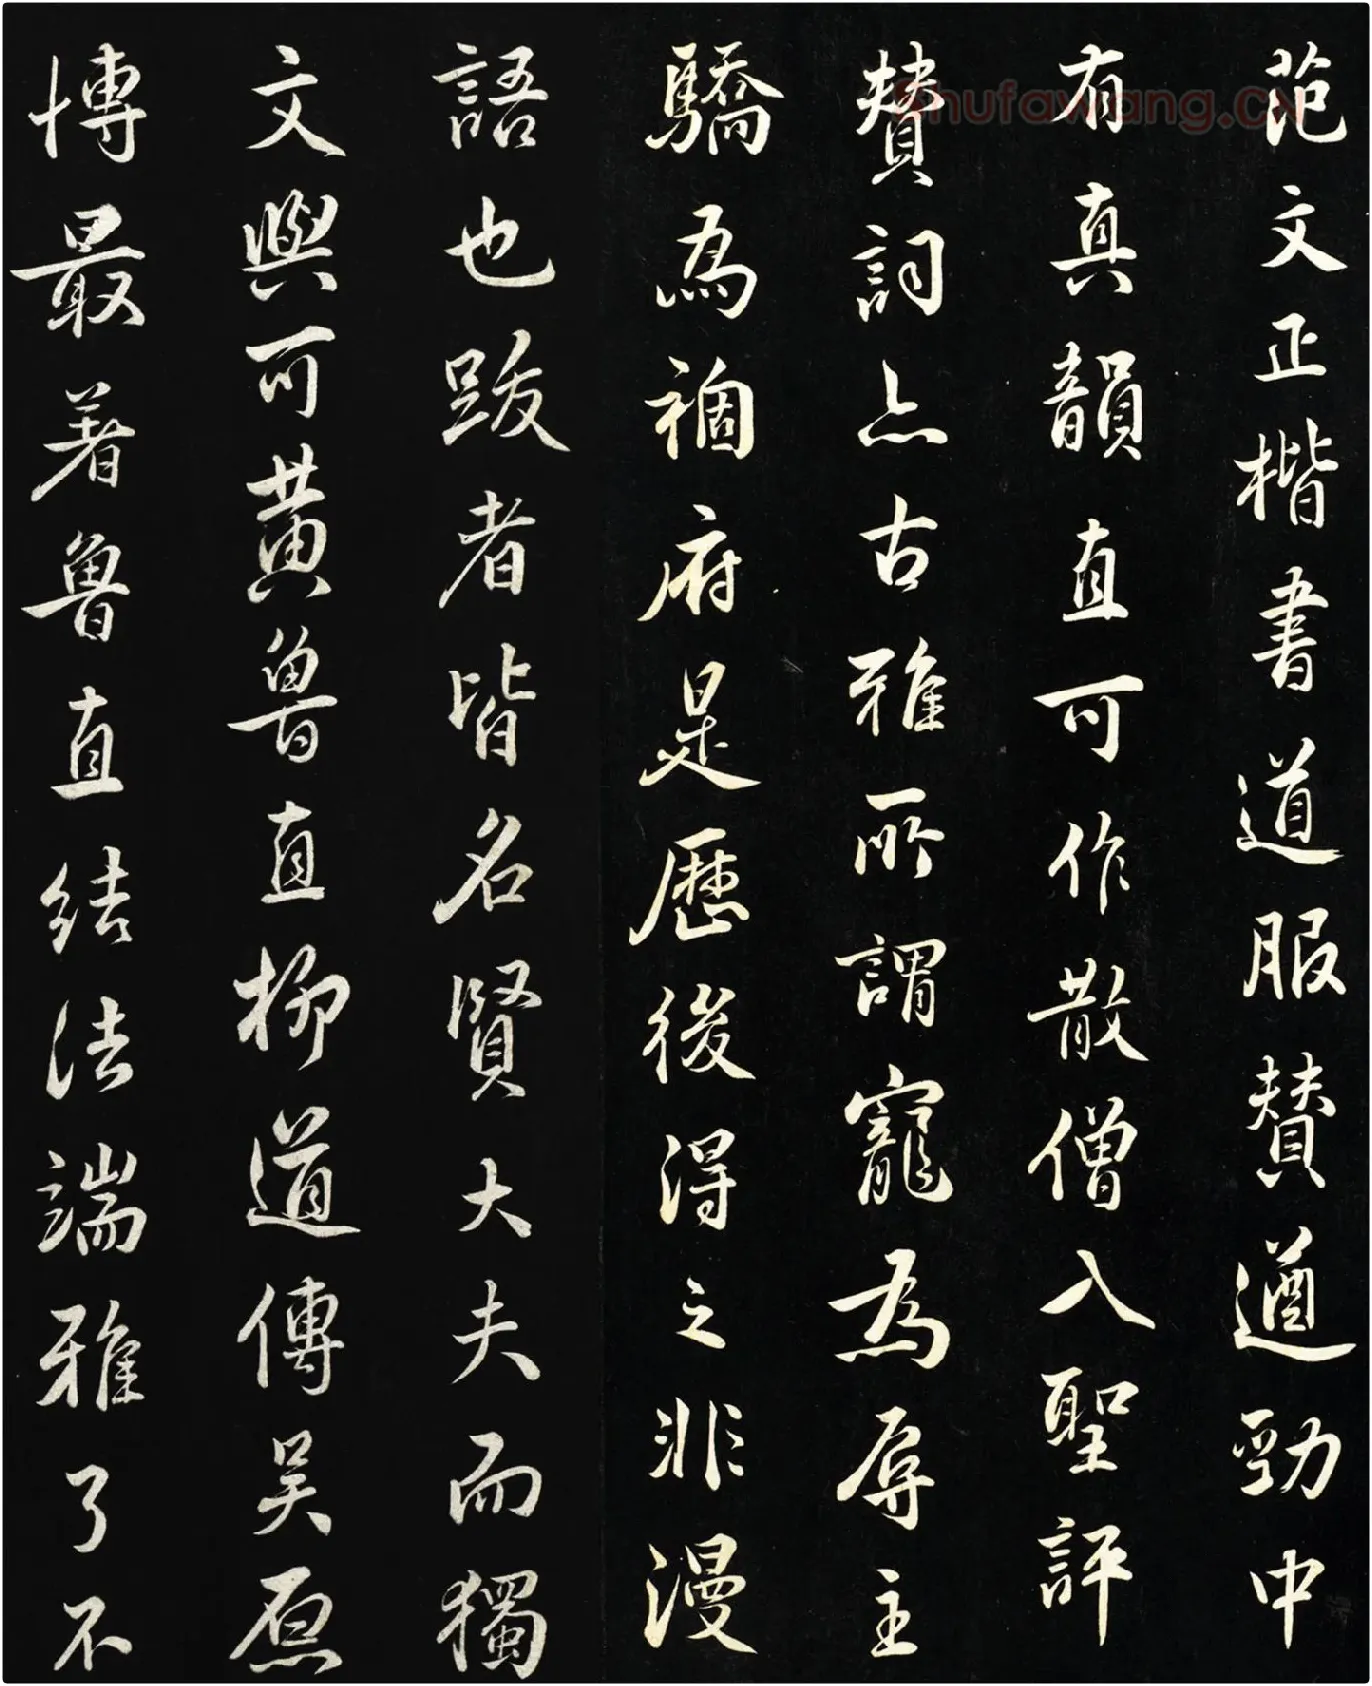 范文正楷書道服賛遒勁中
有真韻直可作散僧入聖評
賛詞亦古雅所謂寵為辱主
驕為禍府是歷後得之非漫
語也跋者皆名賢大夫而獨
文與可黄魯直柳道傳吴原
博最著魯直結法端雅了不
Shufawang.CN